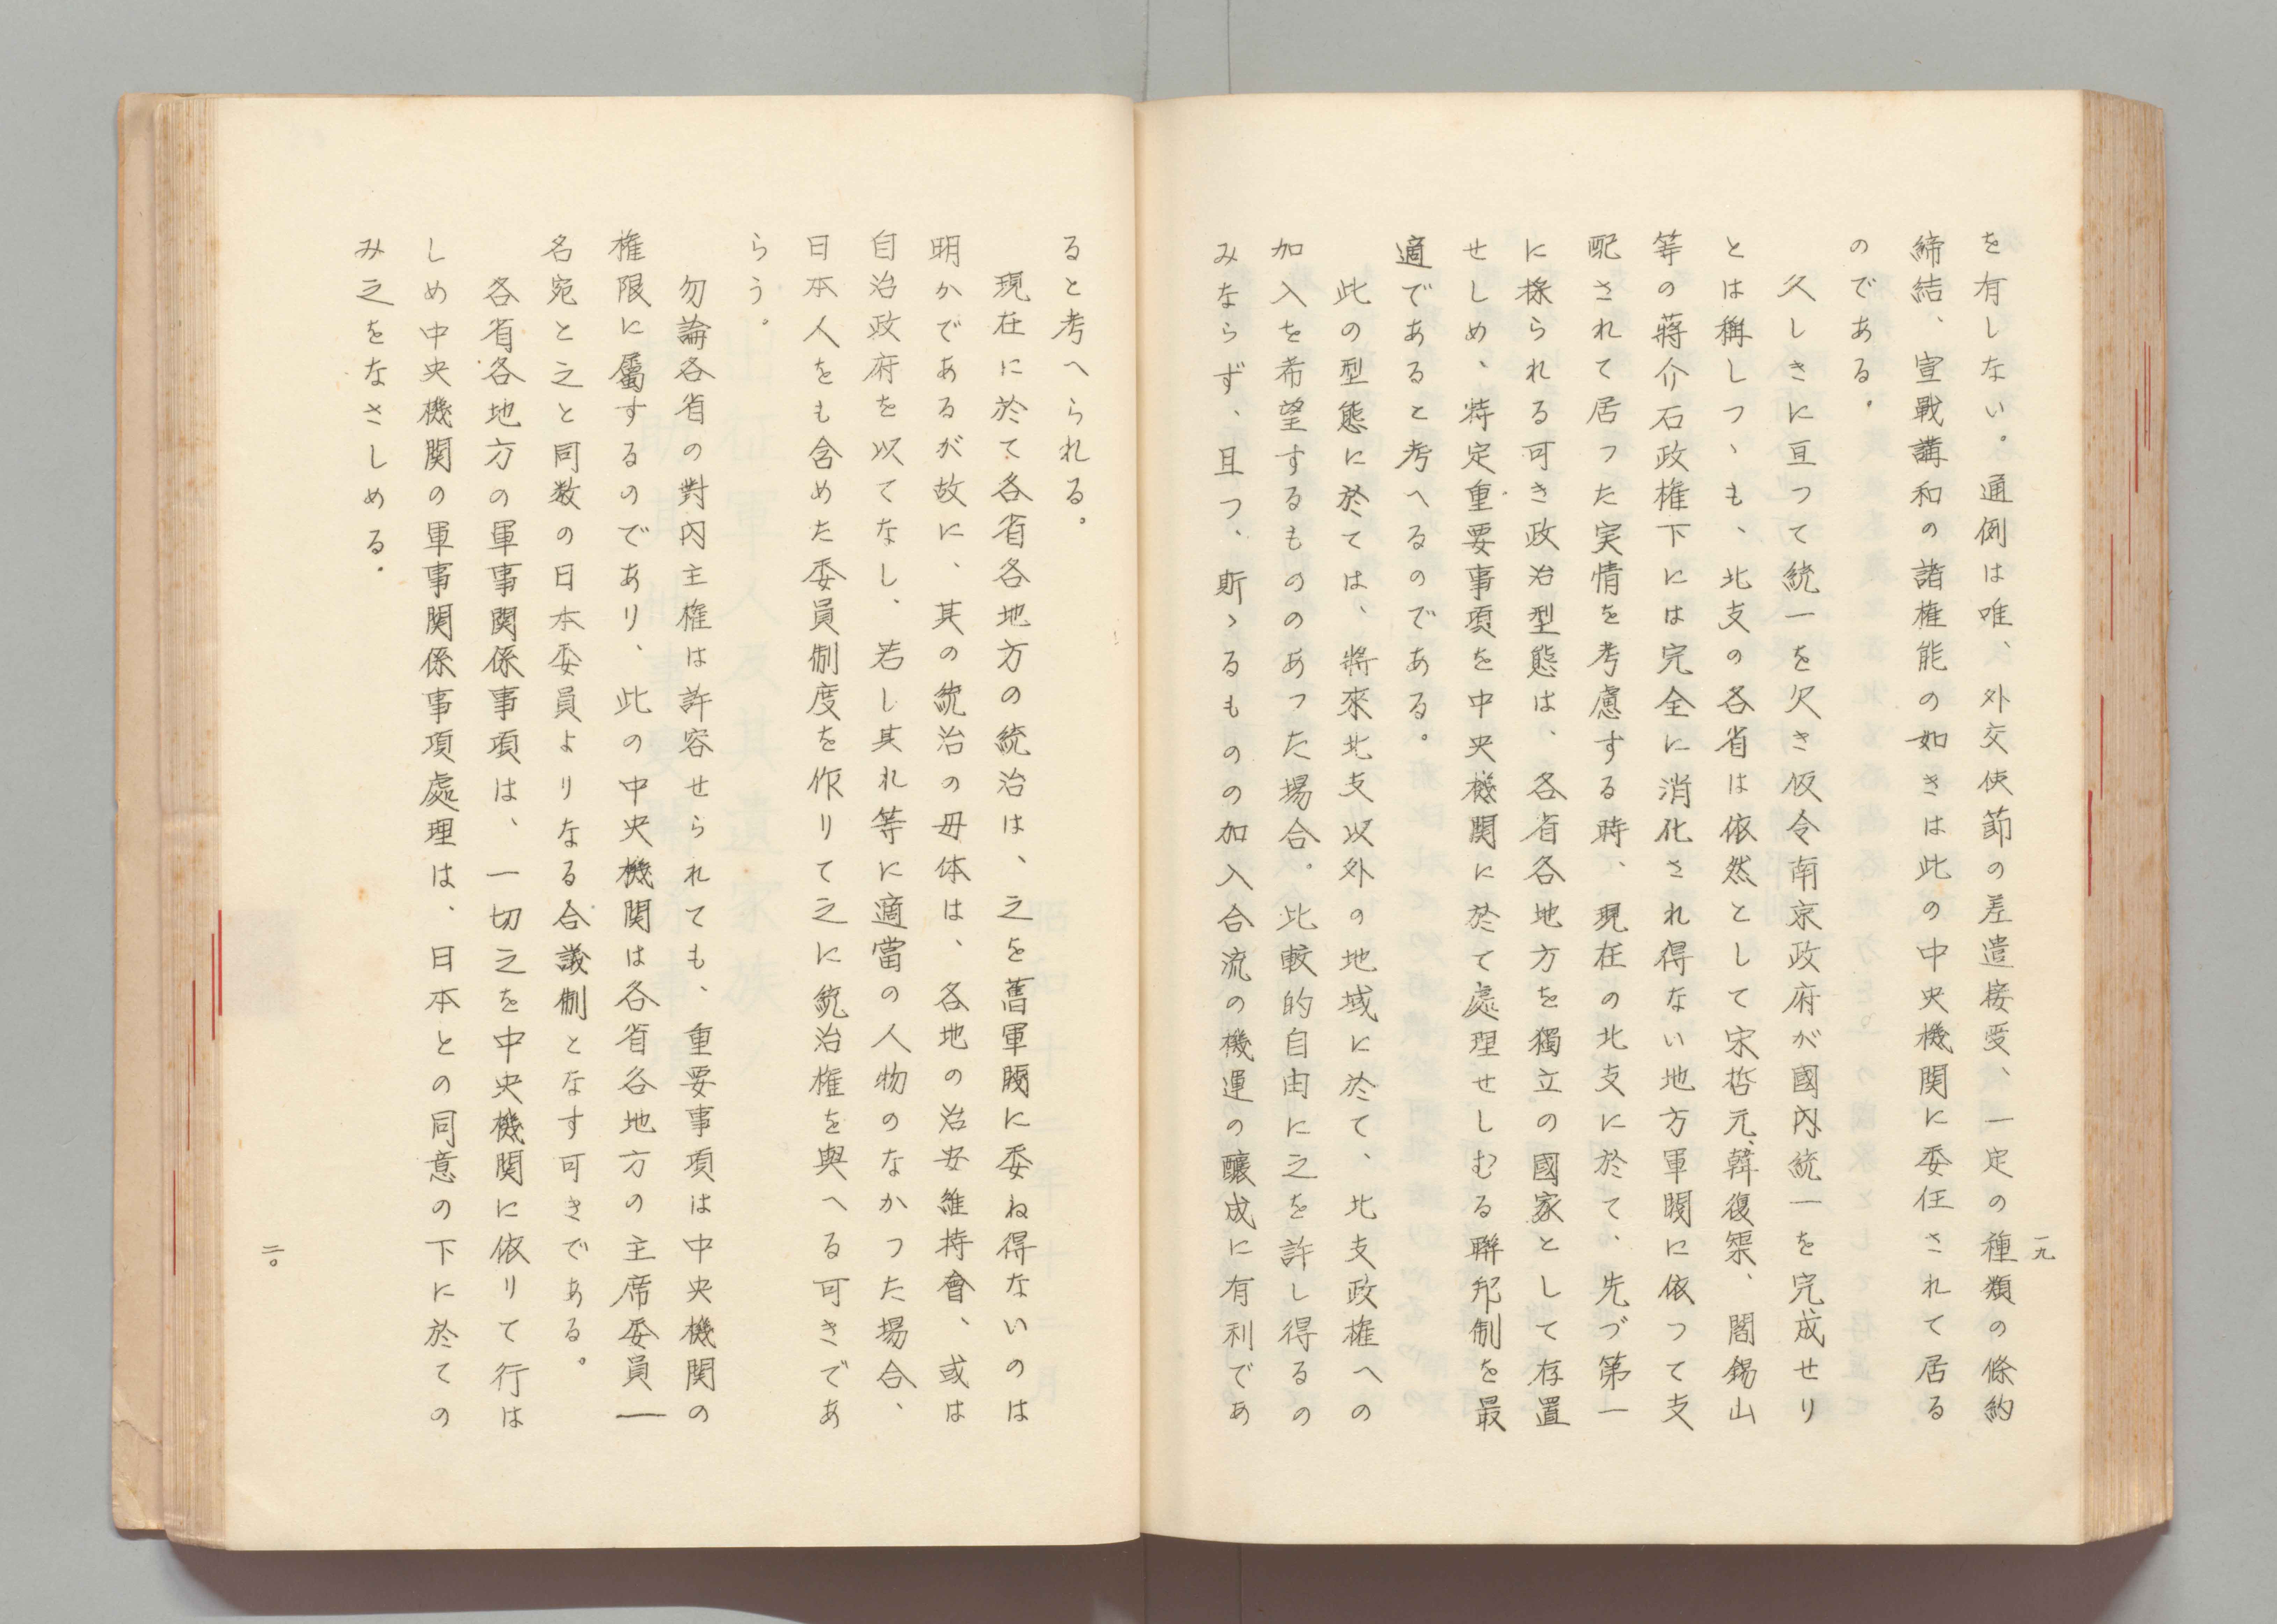 一九
を有しない。通例は唯、外交使節の差遣接受、一定の種類の條約
締結、宣戰講和の諸権能の如きは此の中央機関に委任されて居る
のである。
久しきに亘って統一を欠き仮令南京政府が國內統一を完成せり
とは稱しつゝも、北支の各省は依然として宋哲元、韓復榘、閻錫山
等の蔣介石政権下には完全に消化され得ない地方軍閥に依って支
配されて居った実情を考慮する時、現在の北支に於て、先づ第一
に採られる可き政治型態は、各省各地方を獨立の國家として存置
せしめ、特定重要事項を中央機関に於て處理せしむる聯邦制を最
適であると考へるのである。
此の型態に於ては、將來北支以外の地域に於て、北支政権への
加入を希望するもののあった場合。比較的自由に之を許し得るの
みならず、且つ、斯ゝるものの加入合流の機運の釀成に有利であ
ると考へられる。
現在に於て各省各地方の統治は、之を舊軍閥に委ね得ないのは
明かであるが故に、其の統治の母体は、各地の治安維持會、或は
自治政府を以てなし、若し其れ等に適當の人物のなかつた場合、
日本人をも含めた委員制度を作りて之に統治権を與へる可きであ
らう。
勿論各省の對內主権は許容せられても、重要事項は中央機関の
権限に屬するのであり、此の中央機関は各省各地方の主席委員一
名宛と之と同数の日本委員よりなる合議制となす可きである。
各省各地方の軍事関係事項は、一切之を中央機関に依りて行は
しめ中央機関の軍事関係事項處理は、日本との同意の下に於ての
み之をなさしめる。
二〇